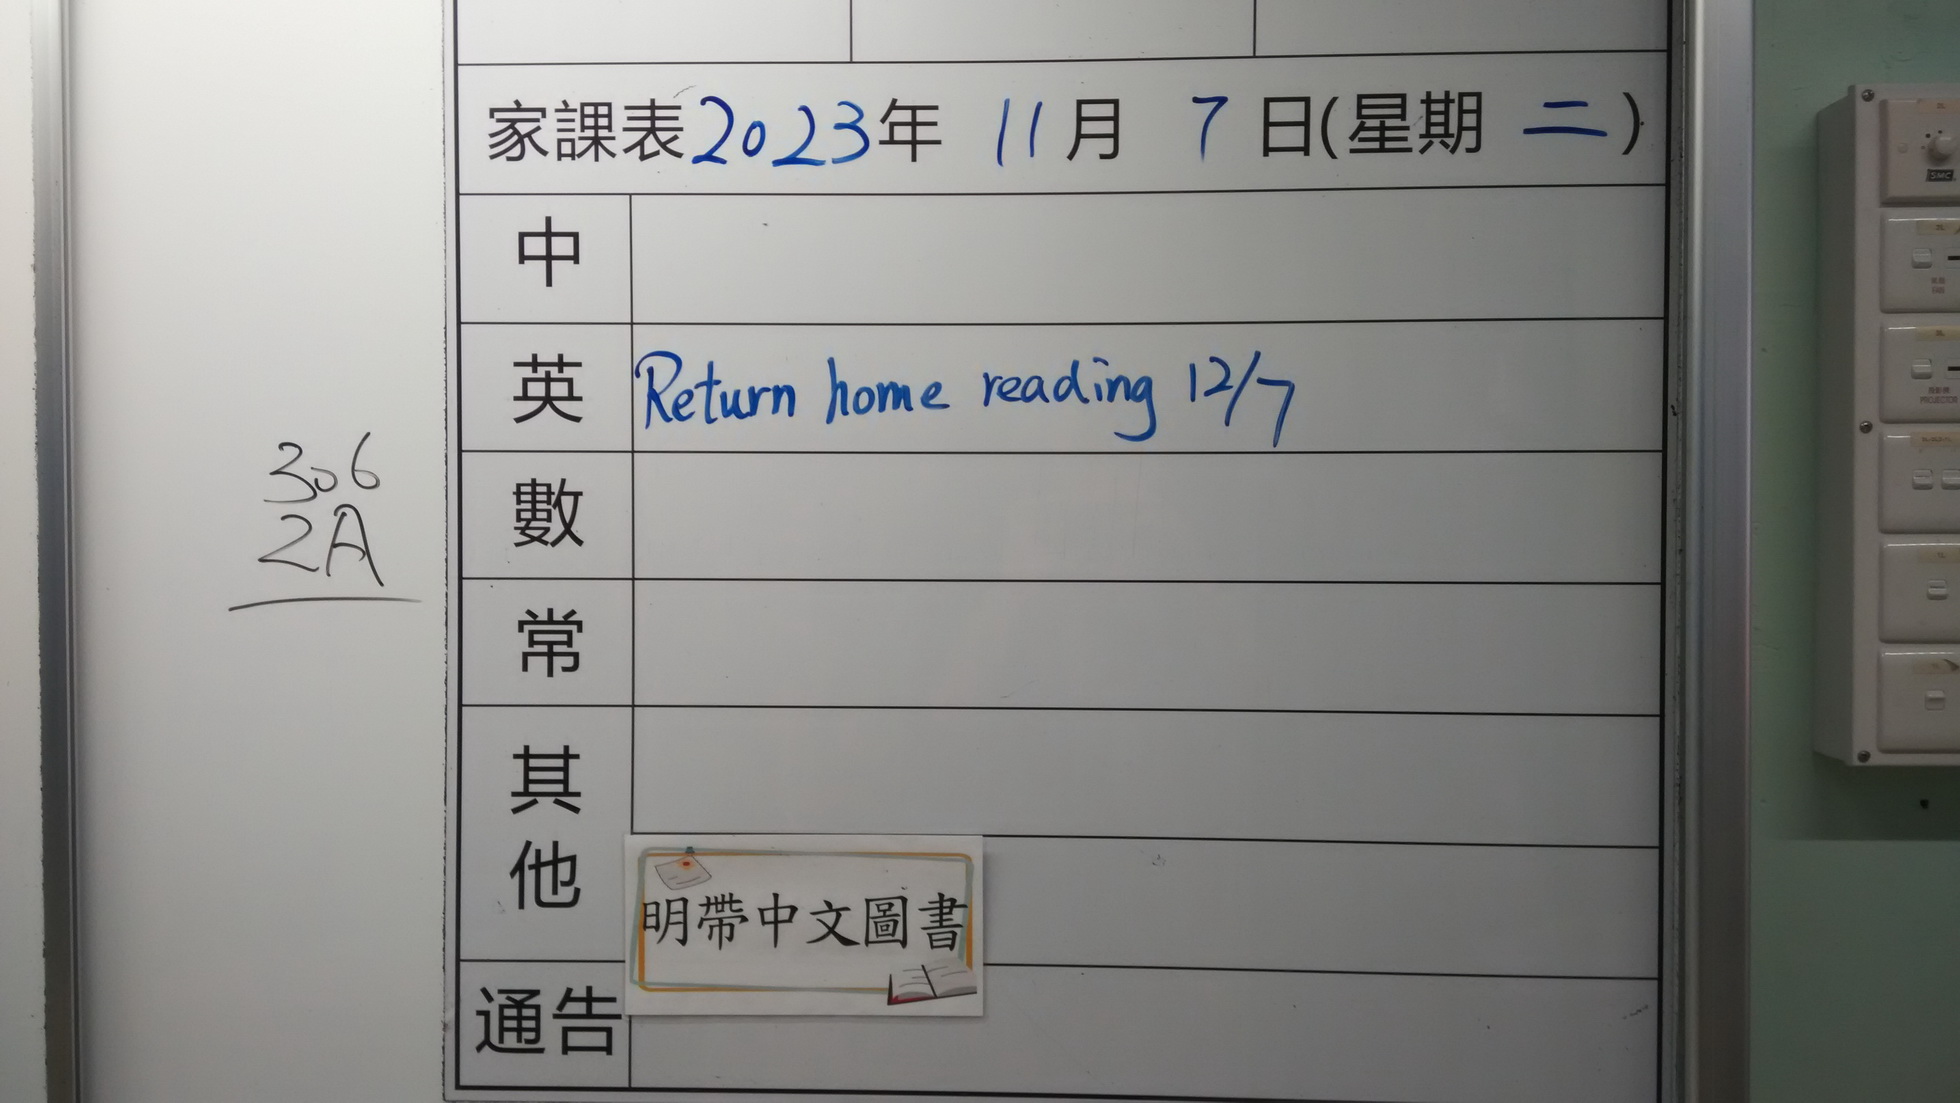 家課表2023年 11月 7日(星期 二)
中
英 Return home reading 12/7
數
常
306
2A
其他
明帶中文圖書
通告
SMC
PROJECTOR